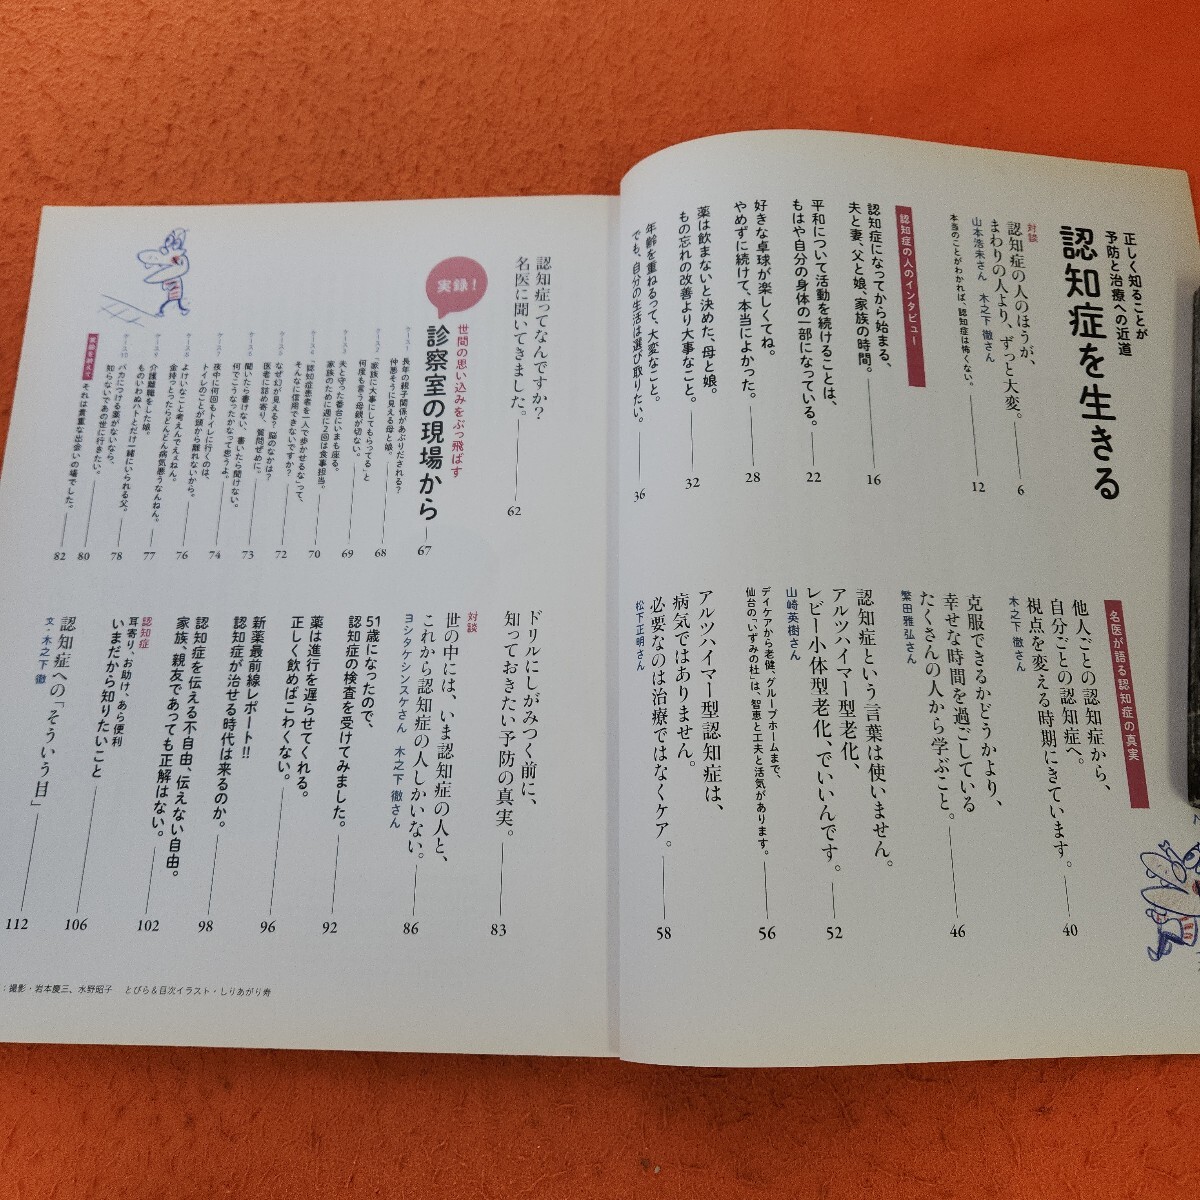 正しく知ることが
予防と治療への近道
認知症を生きる
対談
認知症の人のほうが、
まわりの人より、ずっと大変。
6
山本浩未さん 木之下 徹さん
本当のことがわかれば、認知症は怖くない。
12
認知症の人のインタビュー
認知症になってから始まる、
夫と妻、父と娘、家族の時間。
16
平和について活動を続けることは、
もはや自分の身体の一部になっている。
22
好きな卓球が楽しくてね。
やめずに続けて、本当によかった。
28
薬は飲まないと決めた、母と娘。
もの忘れの改善より大事なこと。
32
年齢を重ねるって、大変なこと。
でも、自分の生活は選び取りたい。
36
名医が語る認知症の真実
他人ごとの認知症から、
自分ごとの認知症へ。
視点を変える時期にきています。
40
木之下 徹さん
克服できるかどうかより、
幸せな時間を過ごしている
たくさんの人から学ぶこと。
46
繁田雅弘さん
認知症という言葉は使いません。
アルツハイマー型老化、
レビー小体型老化、でいいんです。
52
山崎英樹さん
デイケアから老健、グループホームまで、
仙台の「いずみの杜」は、智恵と工夫と活気があります。
56
アルツハイマー型認知は、
病気ではありません。
必要なのは治療ではなくケア。
58
松下正明さん
認知症ってなんですか?
名医に聞いてきました。
62
実録!
世間の思い込みをぶっ飛ばす
診察室の現場から
67
ケース1
長年の親子関係があぶりだされる?
仲悪そうに見える母と娘。
68
ケース2
「家族に大事にしてもらってる」と
何度も言う母親が切ない。
69
ケース3
夫と守った番台にいまも座る。
家族のために週に2回は食事担当。
70
ケース4
「認知症患者を一人で歩かせるな」って、
そんなに信用できないですか?
72
ケース5
なぜ幻が見える? 脳のなかは?
医者に詰め寄り、質問ぜめに。
73
ケース6
聞いたら書けない、書いたら聞けない。
何でこうなったかなって思うよ。
74
ケース7
夜中に何回もトイレに行くのは、
トイレのことが頭から離れないから。
76
ケース8
よけいなこと考えんでええねん。
金持っとったらどんどん病気悪うなんねん。
77
ケース9
介護離職をした娘。
ものいわぬハトとだけ一緒にいられる父。
78
ケース10
バカにつける薬がないなら、
知らないであの世に行きたい。
80
実録を終えて
それは貴重な出会いの場でした。
82
ドリルにしがみつく前に、
知っておきたい予防の真実。
83
対談
世の中には、いま認知症の人と、
これから認知症の人しかいない。
86
ヨシタケシンスケさん 木之下 徹さん
51歳になったので、
認知症の検査を受けてみました。
92
薬は進行を遅らせてくれる。
正しく飲めばこわくない。
96
新薬最前線レポート!!
認知症が治せる時代は来るのか。
98
認知症を伝える不自由、伝えない自由。
家族、親友であっても正解はない。
102
認知症
耳寄り、お助け、あら便利
いまだから知りたいこと
106
認知症への「そういう目」
112
文・木之下 徹
:撮影・岩本慶三、水野昭子 とびら&目次イラスト・しりあがり寿